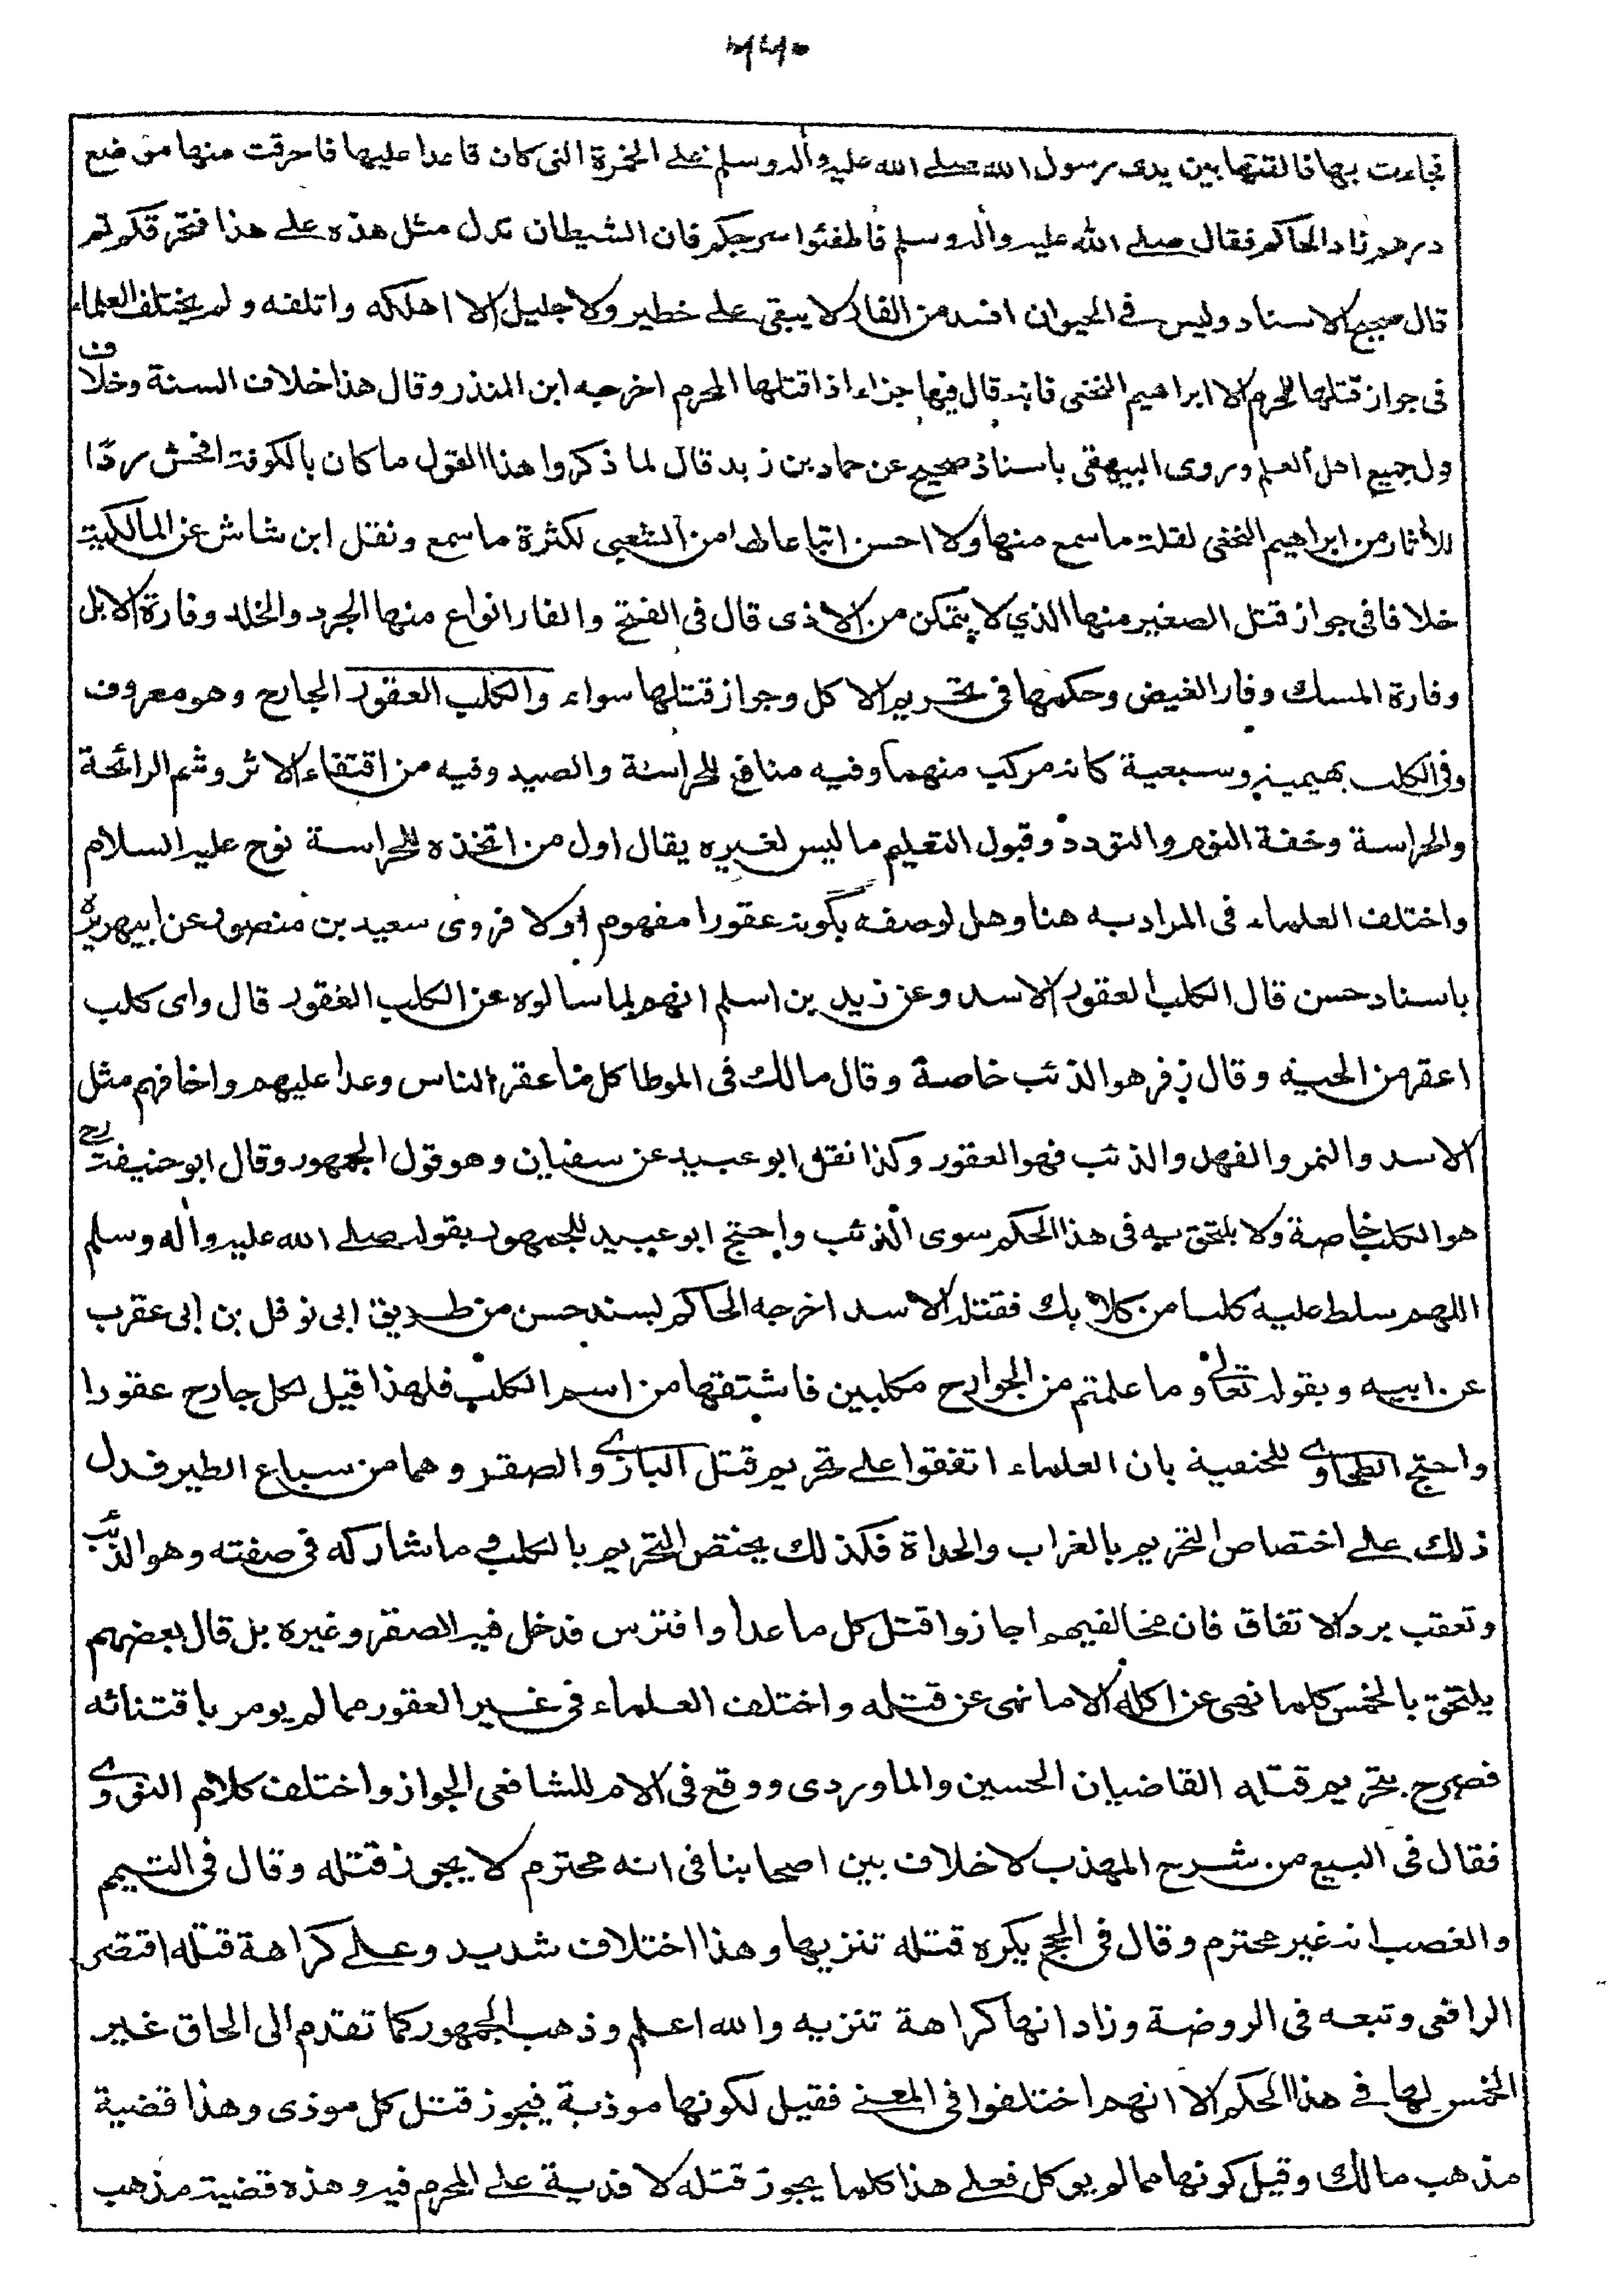 فجاءت بها فالقتها بين يدى رسول الله صلے الله عليه وأله وسلم على الخمرة التى كان قاعدا عليها فاحرقت منها موضع
درهم زاد الحاكم فقال صلے الله عليه وأله وسلم فاطفئوا سرجكم فان الشيطان يدل مثل هذه علے هذا فتحرقكم ثم
قال صحيح الاسناد وليس فے الحيوان افسد من الفار لا يبقى علے خطير ولا جليل الا اهلكه واتلفه ولم يختلف العلماء
فى جواز قتلها للمحرم الا ابراهيم النخعى فانه قال فيها جزاء اذا قتلها المحرم اخرجه ابن المنذر وقال هذا خلاف السنة وخلاف
قول جميع اهل العلم وروى البيهقى باسناد صحيح عن حماد بن زيد قال لما ذكروا هذا القول ما كان بالكوفة افحش ردّا
للأثار من ابراهيم النخعى لقلة ما سمع منها ولا احسن اتباعا لها من الشعبى لكثرة ما سمع ونقل ابن شاش عن المالكية
خلافا فى جواز قتل الصغير منها الذي لا يتمكن من الاذى قال فى الفتح والفار انواع منها الجرد والخلد وفارة الابل
وفارة المسك وفار الغيض وحكمها فى تحريم الاكل وجواز قتلها سواء والكلب العقور الجارح وهو معروف
وفى الكلب بهيمية وسبعية كانه مركب منهما وفيه منافع للحراسة والصيد وفيه من اقتفاء الاثر وشم الرائحة
والحراسة وخفة النوم والتودد وقبول التعليم ما ليس لغيره يقال اول من اتخذه للحراسة نوح عليه السلام
واختلف العلماء فى المراد به هنا وهل لوصفه بكونه عقورا مفهوم اولا فروى سعيد بن منصور عن ابيهريرة
باسناد حسن قال الكلب العقور الاسد وعن زيد بن اسلم انهم لما سالوه عن الكلب العقور قال واى كلب
اعقر من الحية وقال زفر هو الذئب خاصة وقال مالك فى الموطا كل ما عقر الناس وعدا عليهم واخافهم مثل
الاسد والنمر والفهد والذئب فهو العقور وكذا نقل ابو عبيد عن سفيان وهو قول الجمهور وقال ابو حنيفة رح
هو الكلب خاصة ولا يلتحق به فى هذا الحكم سوى الذئب واحتج ابو عبيد للجمهور بقوله صلے الله عليه وأله وسلم
اللهم سلط عليه كلبا من كلابك فقتله الاسد اخرجه الحاكم بسند حسن من طريق ابى نوفل بن ابى عقرب
عن ابيه وبقوله تعالے وما علمتم من الجوارح مكلبين فاشتقها من اسم الكلب فلهذا قيل لكل جارح عقورا
واحتج الطحاوے للحنفية بان العلماء اتفقوا علے تحريم قتل البازے والصقر وهما من سباع الطير فدل
ذلك علے اختصاص التحريم بالغراب والحداة فكذلك يختص التحريم بالكلب وما شاركه فى صفته وهو الذئب
وتعقب برد الاتفاق فان مخالفيهم اجازوا قتل كل ما عدا وافترس فدخل فيه الصقر وغيره بل قال بعضهم
يلتحق بالخمس كلما نهى عن اكله الا ما نهى عن قتله واختلف العلماء فى غير العقور مما لم يومر باقتنائه
فصرح بتحريم قتله القاضيان الحسين والماوردى ووقع فى الام للشافعى الجواز واختلف كلام النووے
فقال فى البيع من شرح المهذب لا خلاف بين اصحابنا فى انه محترم لا يجوز قتله وقال فى التيمم
والغصب انه غير محترم وقال فى الحج يكره قتله تنزيها وهذا اختلاف شديد وعلے كراهة قتله اقتصر
الرافعى وتبعه فى الروضة وزاد انها كراهة تنزيه والله اعلم وذهب الجمهور كما تقدم الى الحاق غير
الخمس بها فے هذا الحكم الا انهم اختلفوا فى المعنے فقيل لكونها موذية فيجوز قتل كل موذى وهذا قضية
مذهب مالك وقيل كونها مما لم يوكل فعلے هذا كلما يجوز قتله لا فدية علے المحرم فيه وهذه قضية مذهب